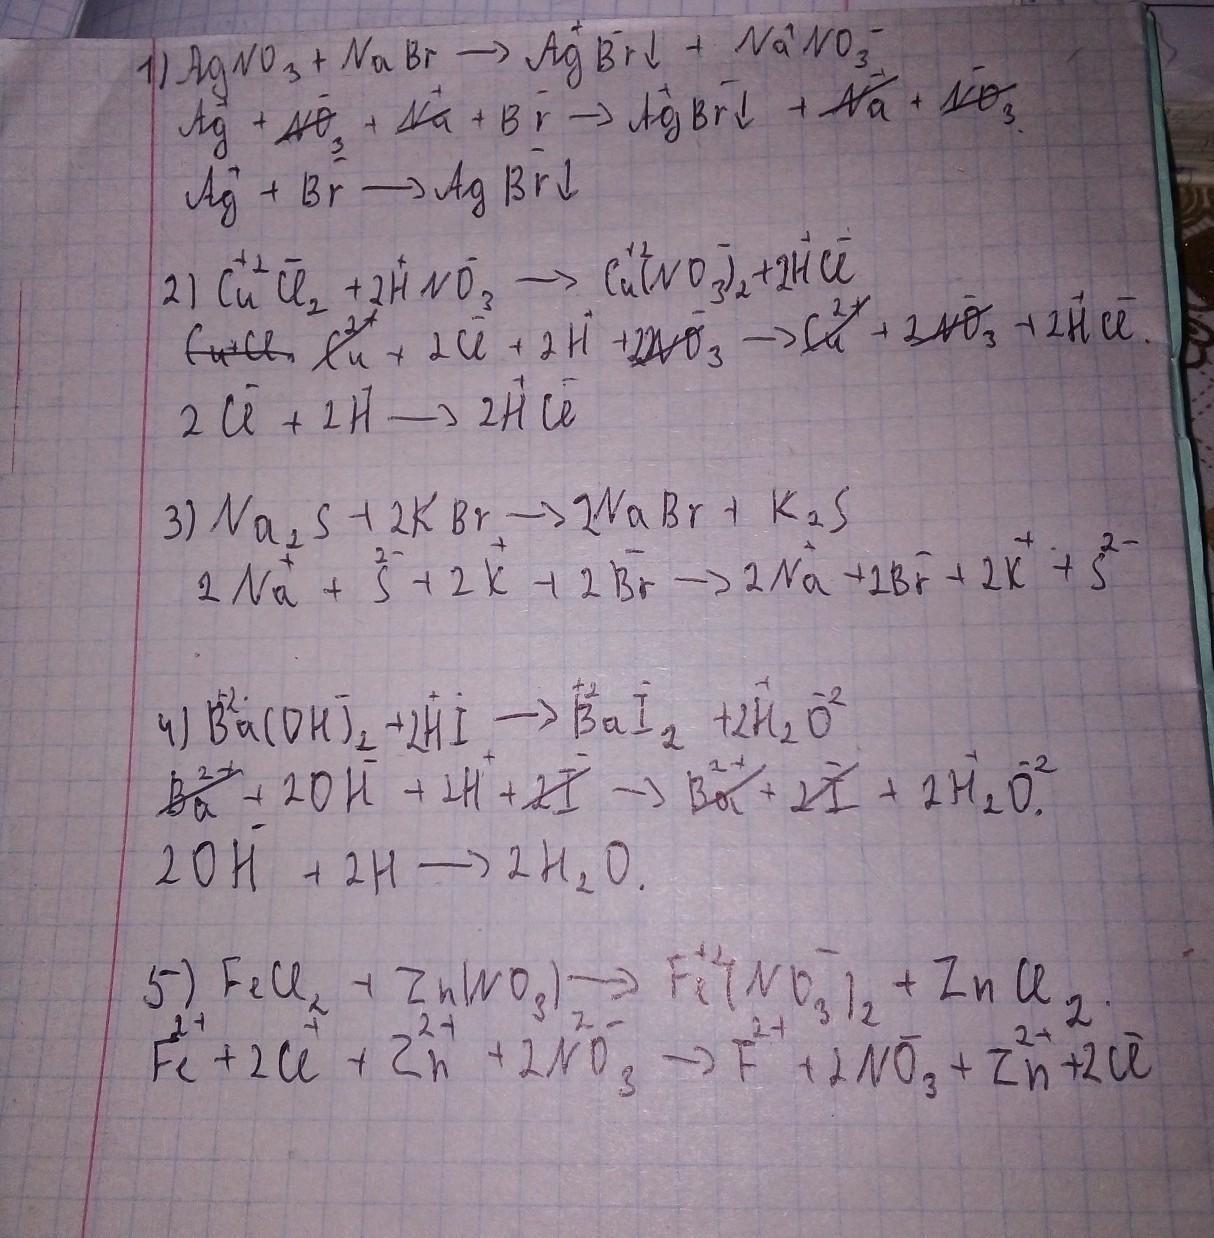 1) AgNO₃ + NaBr → Ag⁺Br⁻↓ + Na⁺NO₃⁻
Ag⁺ + NO₃⁻ + Na⁺ + Br⁻ → Ag⁺Br⁻↓ + Na⁺ + NO₃⁻.
Ag⁺ + Br⁻ → AgBr⁻↓
2) Cu⁺²Cl⁻₂ + 2H⁺NO₃⁻ → Cu⁺²(NO₃⁻)₂ + 2H⁺Cl⁻
Cu+Cl. Cu²⁺ + 2Cl⁻ + 2H⁺ + 2NO₃⁻ → Cu²⁺ + 2NO₃⁻ + 2H⁺Cl⁻.
2Cl⁻ + 2H⁺ → 2H⁺Cl⁻
3) Na₂S + 2KBr → 2NaBr + K₂S
2Na⁺ + S²⁻ + 2K⁺ + 2Br⁻ → 2Na⁺ + 2Br⁻ + 2K⁺ + S²⁻
4) Ba⁺²(OH)⁻₂ + 2H⁺I⁻ → Ba⁺²I⁻₂ + 2H⁺₂O⁻²
Ba²⁺ + 2OH⁻ + 2H⁺ + 2I⁻ → Ba²⁺ + 2I⁻ + 2H⁺₂O⁻².
2OH⁻ + 2H → 2H₂O.
5) FeCl₂ + Zn(NO₃)₂ → Fe⁺²(NO₃⁻)₂ + ZnCl₂.
Fe²⁺ + 2Cl⁺ + Zn²⁺ + 2NO₃⁻ → F²⁺ + 2NO₃⁻ + Zn²⁺ + 2Cl⁻